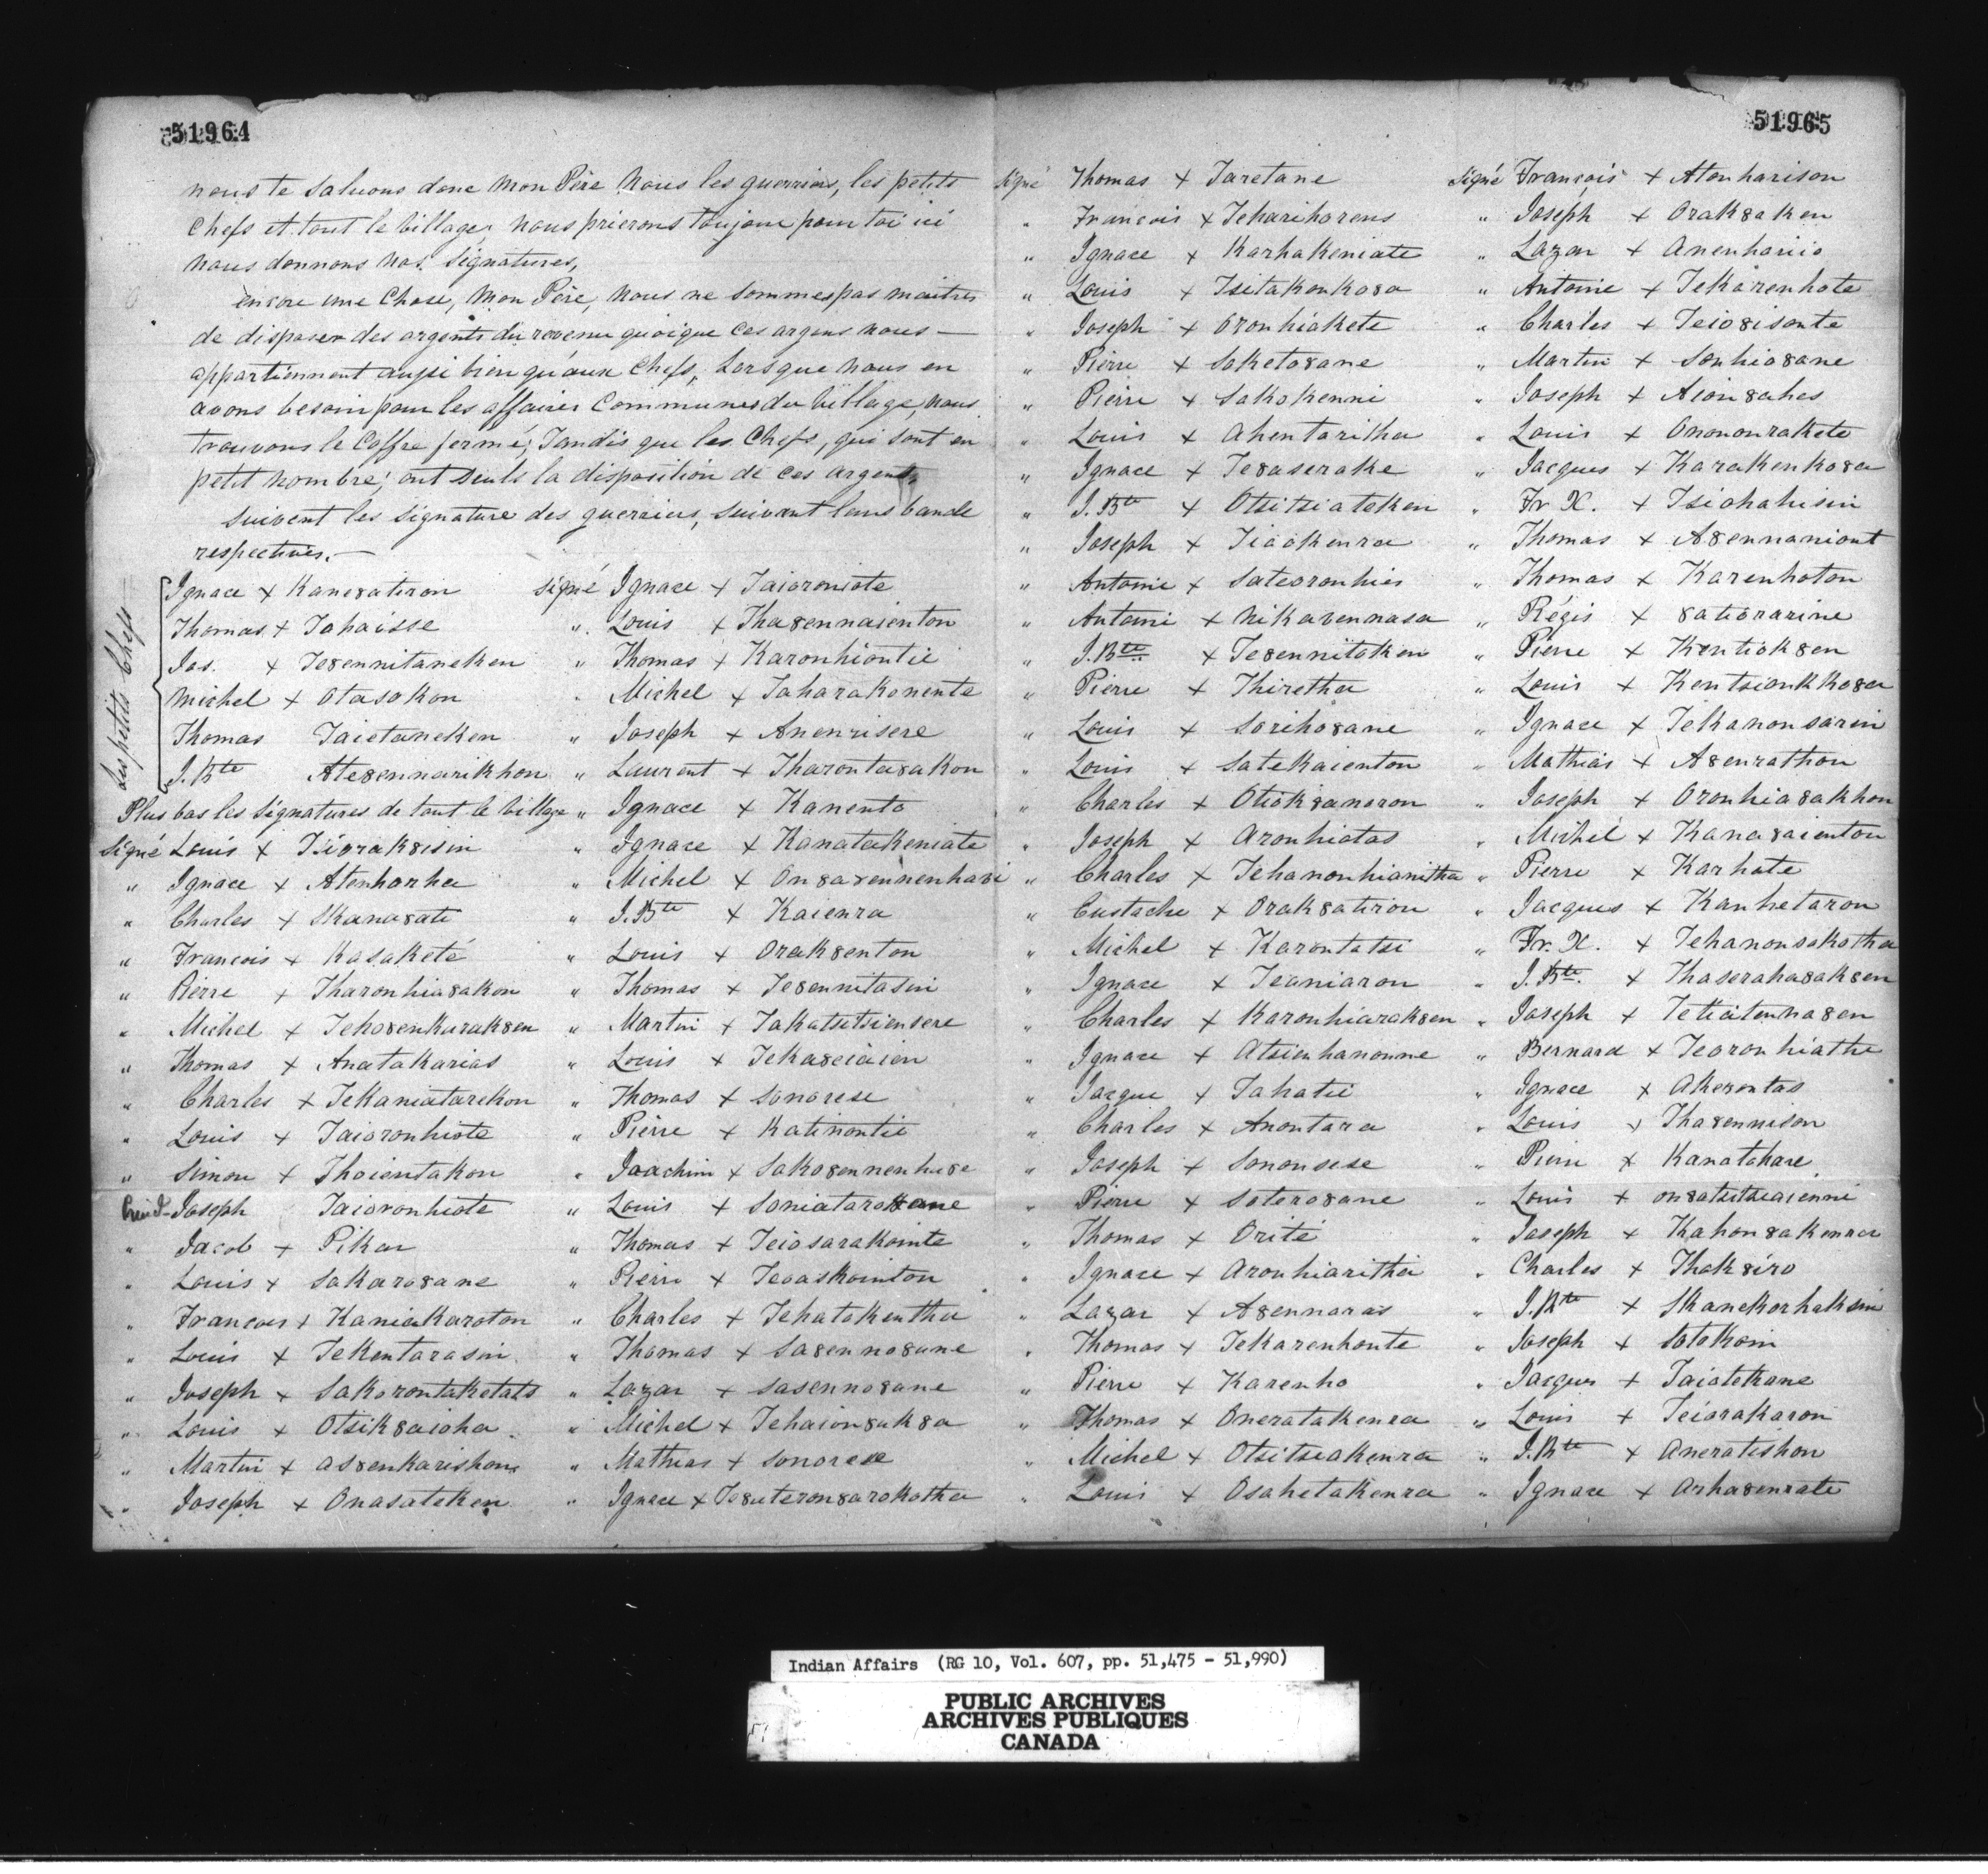 51964
nous te saluons donc mon Père nous les guerriers, les petits
Chefs et tout le village, nous prierons toujour pour toi ici
nous donnons nos signatures,
encore une Chose, Mon Père, nous ne sommes pas maitres
de disposer des argents du revenu quoique ces argens nous —
appartiennent aussi bien qu'aux Chefs, Lorsque nous en
avons besoin pour les affaires Communes du village, nous
trouvons le Coffre fermé; Tandis que les Chefs, qui sont en
petit nombre, ont seuls la disposition de ces argents,
suivent les signature des guerriers, suivant leurs bande
respectives. —
les petits Chefs
Ignace x Kane8atiron
Thomas x Tahaisse
Jas. x Te8ennitaneken
Michel x Otasokon
Thomas Taietaneken
J. Bte Ate8ennarikhon
Plus bas les signatures de tout le village
signé Louis x Tsiorak8isin
" Ignace x Atenhorha
" Charles x Skana8ati
" François x Kasaketé
" Pierre x Tharonhia8akon
" Michel x Teho8enkarak8en
" Thomas x Anatakarias
" Charles x Tekaniatarekon
" Louis x Taioronhiote
" Simon x Thoientakon
Joseph Taioronhiote
" Jacob x Pikar
" Louis x Sakaro8ane
" François x Kaniakaroton
" Louis x Tekentarasin
" Joseph x Sakorontaketats
" Louis x Otsik8aioha
" Martin x As8enkarishon
" Joseph x Onasateken
signé Ignace x Taioroniote
" Louis x Tha8ennaienton
" Thomas x Karonhiontie
" Michel x Taharakonente
" Joseph x Anenrisere
" Laurent x Tharonta8akon
" Ignace x Kanento
" Ignace x Kanatakeniate
" Michel x On8a8ennenhavi
" J. Bte x Kaienra
" Louis x Orak8enton
" Thomas x Te8ennitasin
" Martin x Takatsitsiensere
" Louis x Teka8eiaien
" Thomas x Sonorese
" Pierre x Katinontie
" Joachim x Sako8ennenha8e
" Louis x Soniataro8ane
" Thomas x Teiosarakointe
" Pierre x Teoaskointon
" Charles x Tehatakentha
" Thomas x Sa8enno8ane
" Lazar x Sasenno8ane
" Michel x Tehaion8ak8a
" Mathias x Sonorese
" Ignace x Te8ateron8arokotha
51965
signé Thomas x Taretane
" François x Teharihorens
" Ignace x Karhakeniate
" Louis x Tsitakonko8a
" Joseph x Oronhiakete
" Pierre x Saketo8ane
" Pierre x Sakokenni
" Louis x Ahentaritha
" Ignace x Te8aserake
" J. Bte x Otsitsiatoken
" Joseph x Tiaokenra
" Antoine x Sateoronhies
" Antoine x Nikarennasa
" J. Bte x Te8ennitoken
" Pierre x Thiretha
" Louis x Soriho8ane
" Louis x Satekaienton
" Charles x Otiok8anoron
" Joseph x Aronhiatas
" Charles x Tehanonhianitha
" Eustache x Orak8atiron
" Michel x Karontatsi
" Ignace x Teoniaron
" Charles x Karonhiarak8en
" Ignace x Atsienhanonne
" Jacque x Tahatie
" Charles x Anontara
" Joseph x Sononsese
" Pierre x Sotero8ane
" Thomas x Orité
" Ignace x Aronhiaritha
" Lazar x A8ennaras
" Thomas x Tekarenhonte
" Pierre x Karenho
" Thomas x Oneratakenra
" Michel x Otsitsiakenra
" Louis x Osahetakenra
signé François x Atonharison
" Joseph x Orak8aken
" Lazar x Anenhariio
" Antoine x Tekarenhote
" Charles x Teio8isonte
" Martin x Sonhio8ane
" Joseph x Aion8ahes
" Louis x Ononourakete
" Jacques x Karakenko8a
" Fr. X. x Tsiohahisin
" Thomas x A8ennaniont
" Thomas x Karenhoton
" Régis x 8atiorarine
" Pierre x Kentiok8en
" Louis x Kentsionkko8a
" Ignace x Tekanonsarin
" Mathias x A8enrathon
" Joseph x Oronhia8akhon
" Michel x Kana8aienton
" Pierre x Karhate
" Jacques x Kanhetaron
" Fr. X. x Tehanonsakotha
" J. Bte. x Thaseraha8ak8en
" Joseph x Tetiatenna8en
" Bernard x Teoronhiathe
" Ignace x Akerontas
" Louis x Tha8ennison
" Pierre x Kanatahare
" Louis x On8atsitsiaienni
" Joseph x Kahon8akenra
" Charles x Thak8iro
" J. Bte x Skanekorhaksin
" Joseph x Sotokoin
" Jacques x Taiotekane
" Louis x Teiorakaron
" J. Bte x Aneratishon
" Ignace x Arha8enrate
Indian Affairs (RG 10, Vol. 607, pp. 51,475 - 51,990)
PUBLIC ARCHIVES
ARCHIVES PUBLIQUES
CANADA